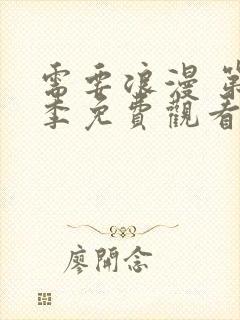 需要浪漫 第
季免費觀看
廖開念